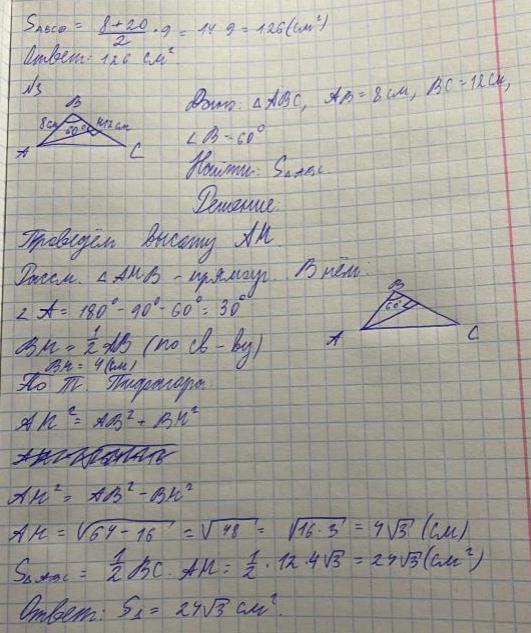 S ABCD = (8+20)/2 · 9 = 14 · 9 = 126 (см²)
Ответ: 126 см²
N3
B
8см 60° 12см
A C
Дано: △ABC, AB = 8см, BC = 12см,
∠B = 60°
Найти: S△ABC.
Решение.
Проведём высоту AH.
Рассм. △AHB - прямоуг. В нём:
∠A = 180° - 90° - 60° = 30°
B
60°
A C
BH = 1/2 AB (по св-ву)
BH = 4(см)
По т. Пифагора:
AH² = AB² + BH²
AH² = AB² - BH²
AH = √(64 - 16) = √48 = √(16 · 3) = 4√3 (см)
S△ABC = 1/2 BC · AH = 1/2 · 12 · 4√3 = 24√3 (см²)
Ответ: S△ = 24√3 см².